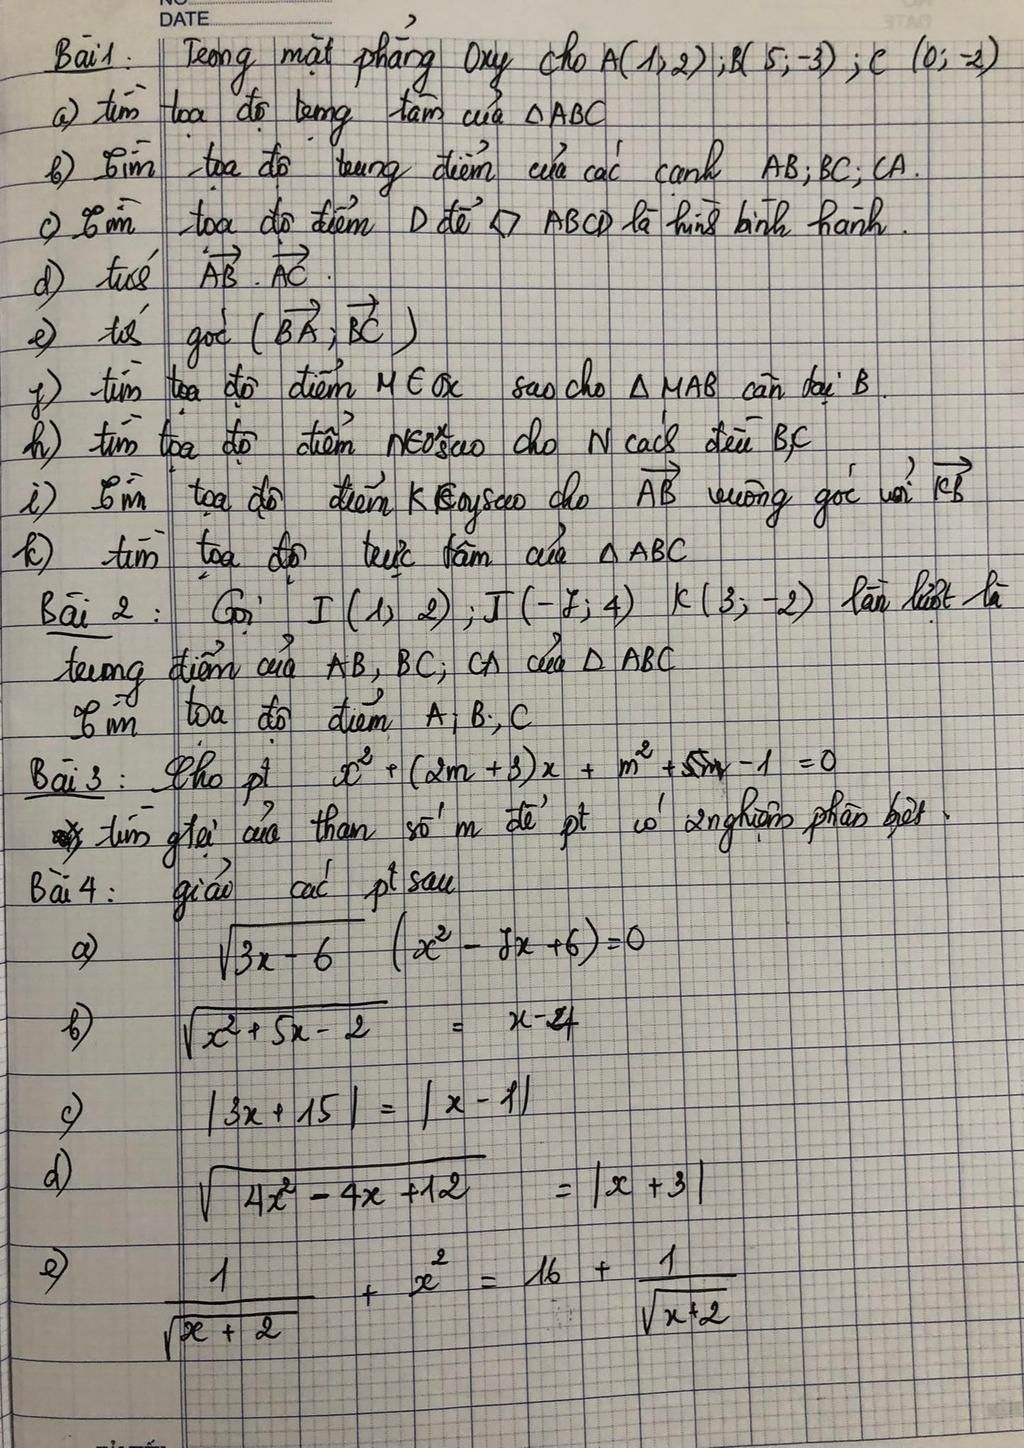 DATE
Bài 1: Trong mặt phẳng Oxy cho A(1;2); B(5;-3); C (0;-2)
a) tìm tọa độ trọng tâm của Δ ABC
b) Tìm tọa độ trung điểm của các cạnh AB; BC; CA.
c) Tìm tọa độ điểm D để ▱ ABCD là hình bình hành.
d) tính \overrightarrow{AB} . \overrightarrow{AC} .
e) tính góc (\overrightarrow{BA}; \overrightarrow{BC})
f) tìm tọa độ điểm M ∈ Ox sao cho Δ MAB cân tại B.
h) tìm tọa độ điểm N∈Ox sao cho N cách đều B,C
i) Tìm tọa độ điểm K∈Oy sao cho \overrightarrow{AB} vuông góc với \overrightarrow{KB}
k) tìm tọa độ trực tâm của Δ ABC
Bài 2: Gọi I(1; 2); J(-7; 4) K(3; -2) lần lượt là
trung điểm của AB, BC; CA của Δ ABC
Tìm tọa độ điểm A; B; C
Bài 3: Cho pt x² + (2m + 3)x + m² + - 1 = 0
tìm gtrị của tham số m để pt có 2 nghiệm phân biệt.
Bài 4: giải các pt sau
a) √(3x - 6) (x² - 7x + 6) = 0
b) √(x² + 5x - 2) = x -
c) |3x + 15| = |x - 1|
d) √(4x² - 4x + 12) = |x + 3|
e) 1/√(x + 2) + x² = 16 + 1/√(x + 2)